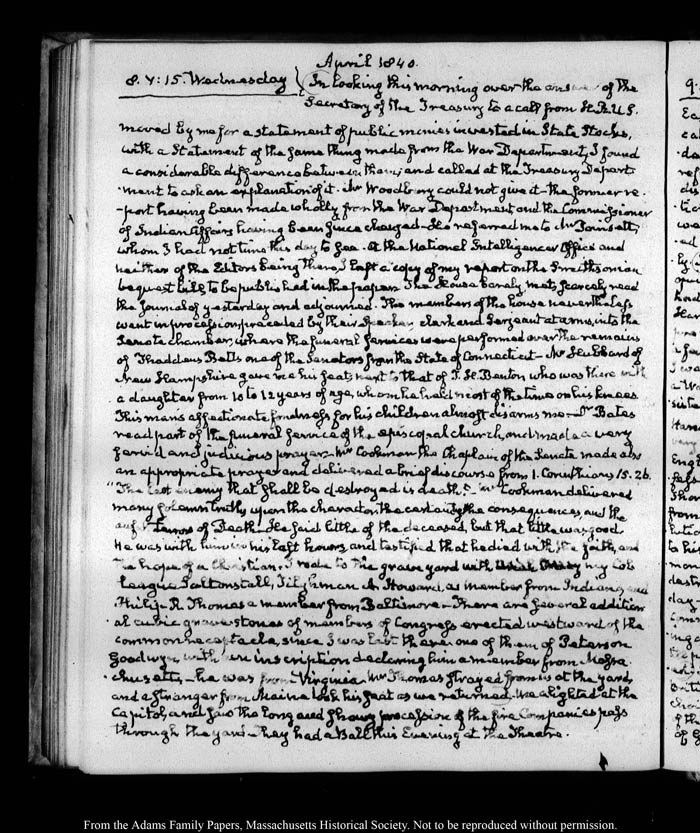 April 1840.
8. V: 15. Wednesday { In looking this morning over the answer of the
Secretary of the Treasury to a call from H.R.U.S.
moved by me for a statement of public monies invested in State Stocks,
with a Statement of the same thing made from the War Department, I found
a considerable difference between them; and called at the Treasury Depart
-ment to ask an explanation of it. Mr Woodbury could not give it - the former re-
-port having been made wholly from the War Department and the Commissioner
of Indian Affairs having been since changed - He referred me to Mr Poinsett,
whom I had not time this day to see. At the National Intelligencer Office and
neither of the Editors being there, I left a copy of my report on the Smithsonian
bequest bill to be published in the paper. The House barely met, scarcely read
the Journal of yesterday and adjourned. The members of the house nevertheless
went in procession preceded by their Speaker, clerk and Serjeant at arms, into the
Senate chamber, where the funeral services were performed over the remains
of Thaddeus Betts one of the Senators from the State of Connecticut - Mr Hubbard of
New Hampshire gave me his seat, next to that of T. H. Benton who was there with
a daughter from 10 to 12 years of age, whom he held most of the time on his knees
This man's affectionate fondness for his children almost disarms me - Mr Bates
read part of the funeral service of the episcopal church, and made a very
fervid and judicious prayer - Mr Cookman the Chaplain of the Senate made also
an appropriate prayer and delivered a brief discourse from 1. Corinthians 15. 26.
"The last enemy that shall be destroyed is death." - Mr Cookman delivered
many solemn truths upon the character, the certainty, the consequences, and the
awful Terrors of Death - He said little of the deceased, but that little was good
He was with him in his last hours, and testified that he died with the faith, and
the hope of a Christian. I rode to the grave yard with my Col
league Saltonstall, Tilghman A. Howard, a member from Indiana, and
Philip R. Thomas a member from Baltimore - There are several addition
al cubic gravestones of members of Congress erected westward of the
common receptacle, since I was last there: one of them of Peterson
Goodwyn, with an inscription declaring him a member from Massa
chusetts, - he was from Virginia. Mr Thomas strayed from us at the yard,
and a stranger from Maine took his seat as we returned. We alighted at the
Capitol, and saw the long and showy procession of the fire Companies pass
through the yard - They had a Ball this Evening at the Theatre.
9.
From the Adams Family Papers, Massachusetts Historical Society. Not to be reproduced without permission.